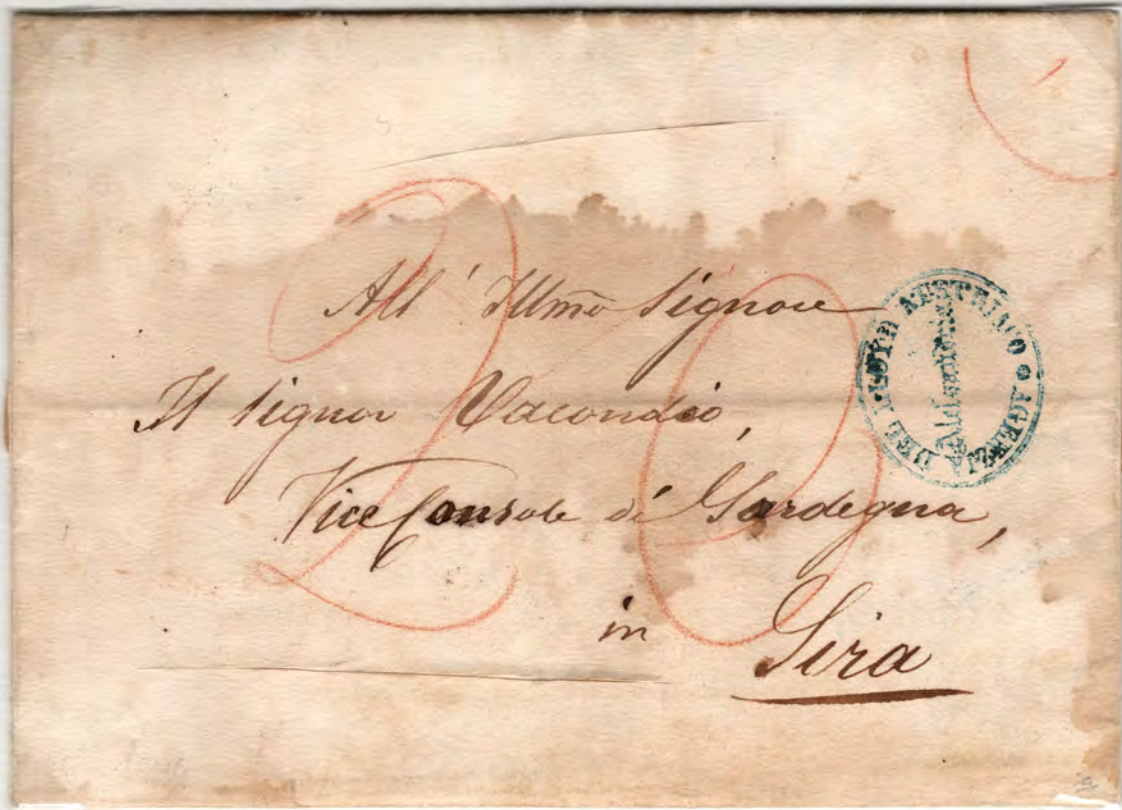 All' Illmo Signore
Il Signor Vacondio,
Vice Console di Sardegna,
in Sira
20
AGENZIA DEL LLOYD AUSTRIACO
Alessandria